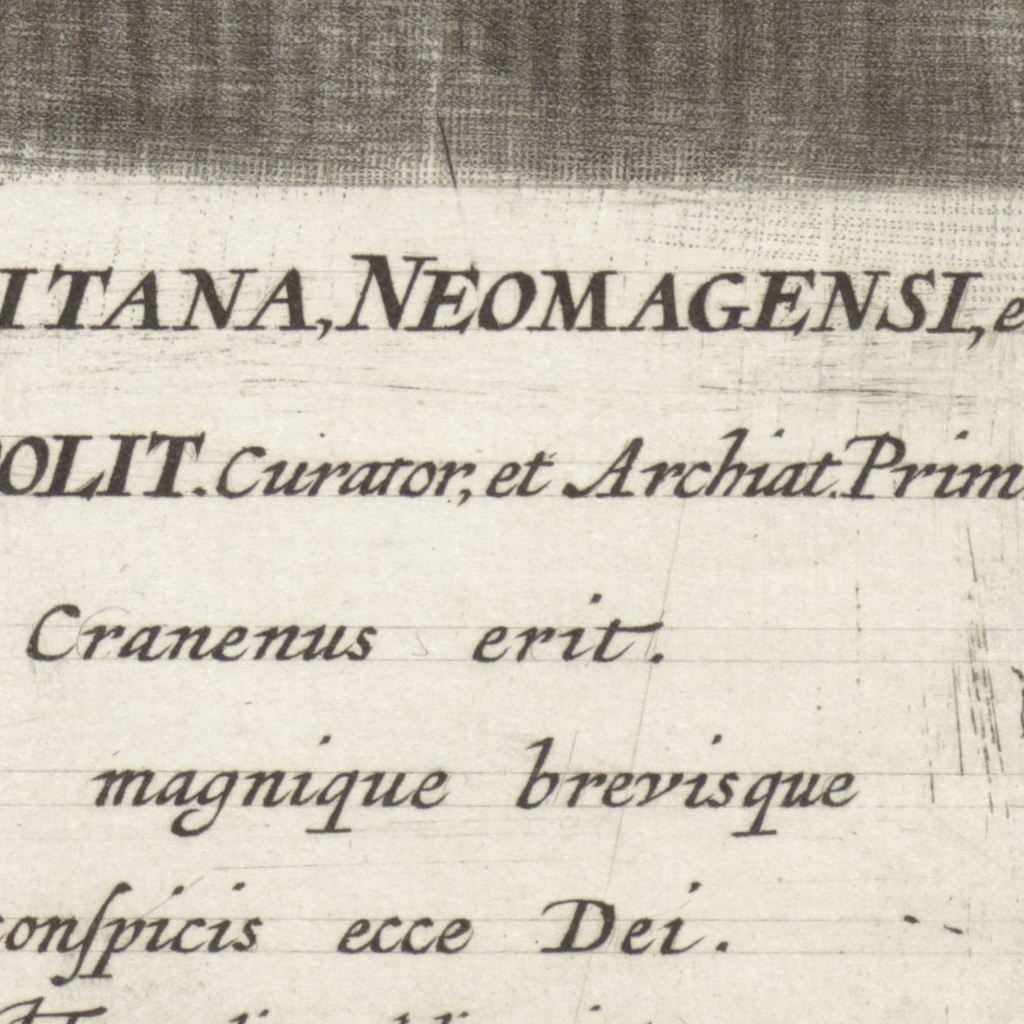 ITANA, NEOMAGENSI, e
OLIT. Curator, et Archiat. Prim
Cranenus erit.
magnique brevisque
conſpicis ecce Dei.